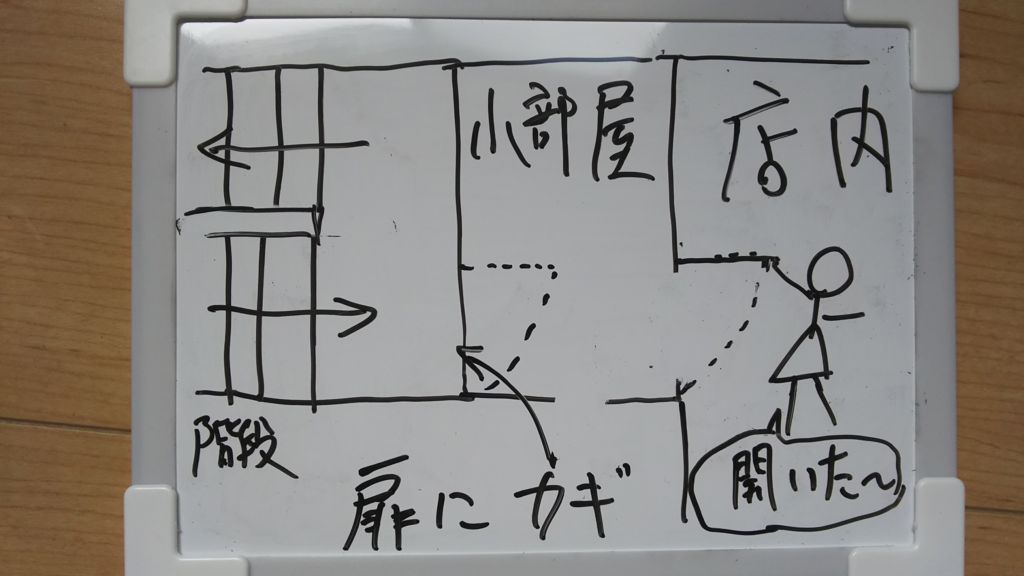 小部屋
店内
階段
扉にカギ
開いた〜